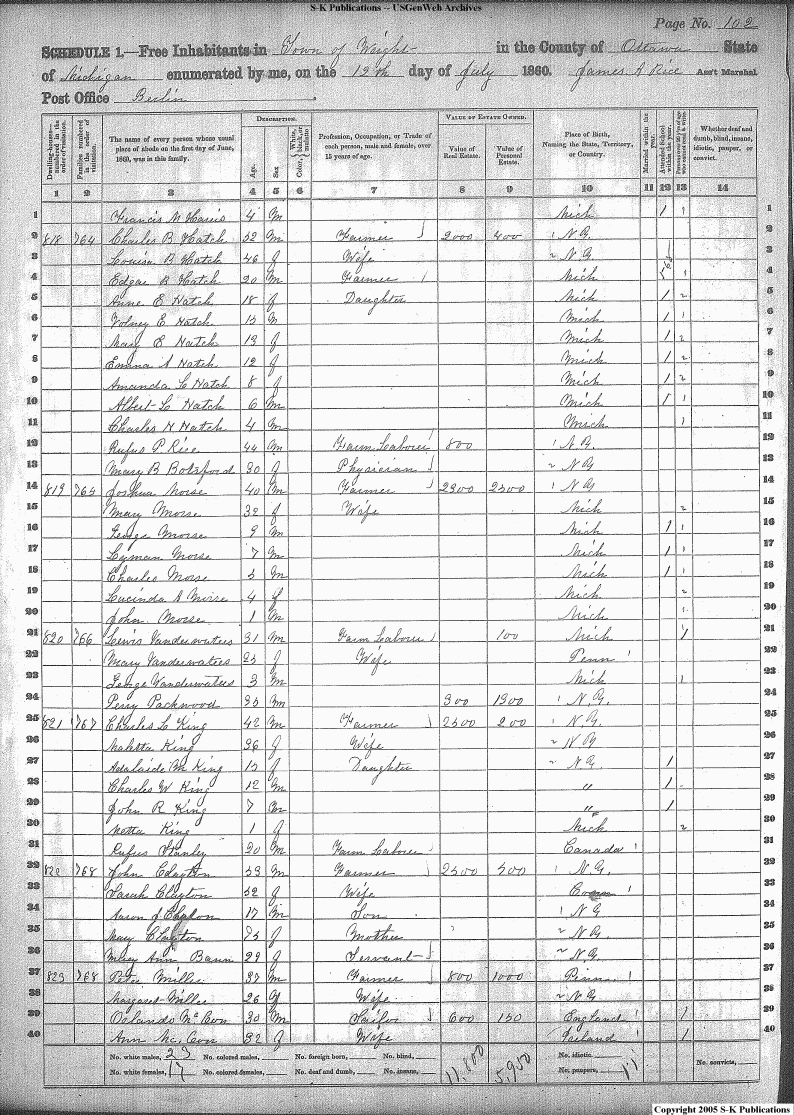 S-K Publications -- USGenWeb Archives
Page No. 102
SCHEDULE 1.—Free Inhabitants in Town of Wright in the County of Ottawa State
of Michigan enumerated by me, on the 12th day of July 1860. James A Rice Ass't Marshal
Post Office Berlin
Dwelling-houses—numbered in the order of visitation.
Families numbered in the order of visitation.
The name of every person whose usual place of abode on the first day of June, 1860, was in this family.
DESCRIPTION.
Age.
Sex.
Color, White, black, or mulatto.
Profession, Occupation, or Trade of each person, male and female, over 15 years of age.
VALUE OF ESTATE OWNED.
Value of Real Estate.
Value of Personal Estate.
Place of Birth, Naming the State, Territory, or Country.
Married within the year.
Attended School within the year.
Whether deaf and dumb, blind, insane, idiotic, pauper, or convict.
1 2 3 4 5 6 7 8 9 10 11 12 13 14
1 4 m Mich 1 1 1
2 818 764 Charles B Hatch 52 m Farmer 2000 400 N.Y. 2
3 Louisa B Hatch 46 f Wife N.Y. 3
4 Edgar B Hatch 20 m Farmer Mich 1 4
5 Anne E Hatch 18 f Daughter Mich 1 2 5
6 Volney E Hatch 15 m Mich 1 1 6
7 Mary E Hatch 13 f Mich 1 2 7
8 Emma A Hatch 12 f Mich 1 2 8
9 Amanda L Hatch 8 f Mich 1 2 9
10 Albert L Hatch 6 m Mich 1 1 10
11 Charles H Hatch 4 m Mich 1 11
12 Rufus P. Rice 44 m Farm Laborer 800 N.Y. 12
13 Mary B Botsford 30 f Physician N.Y. 13
14 819 765 Joshua Morse 40 m Farmer 2300 2500 N.Y. 14
15 Mary Morse 32 f Wife Mich 2 15
16 George Morse 9 m Mich 1 1 16
17 Lyman Morse 7 m Mich 1 1 17
18 Charles Morse 5 m Mich 1 1 18
19 Lucinda A Morse 4 f Mich 2 19
20 John Morse 1 m Mich 1 20
21 820 766 Lewis Vanderwaters 31 m Farm Laborer 100 Mich 1 21
22 Mary Vanderwaters 25 f Wife Penn 22
23 George Vanderwaters 3 m Mich 1 23
24 Perry Packwood 35 m 300 1300 N.Y. 24
25 821 767 Charles L King 42 m Farmer 2500 200 N.Y. 25
26 King 36 f Wife N.Y. 26
27 Adelaide M King 15 f Daughter N.Y. 1 27
28 Charles W King 12 m " 1 28
29 John R King 7 m " 1 29
30 Netta King 1 f Mich 2 30
31 Rufus Stanly 20 m Farm Laborer Canada 31
32 822 768 John Clayton 59 m Farmer 2500 500 N.Y. 32
33 Sarah Clayton 52 f Wife Conn 33
34 Aaron J Clayton 17 m Son N.Y. 34
35 Mary Clayton 75 f Mother N.Y. 35
36 Mary Ann 29 f Servant N.Y. 36
37 823 768 Peter Miller 37 m Farmer 800 1000 Penna 37
38 Margaret Miller 26 f Wife N.Y. 38
39 Orlando McCon 30 m Sailor 600 150 England 1 39
40 Ann McCon 32 f Wife Ireland 1 40
No. white males, 23 No. colored males, No. foreign born, No. blind, 11,800 5950 No. idiotic, No. convicts,
No. white females, 17 No. colored females, No. deaf and dumb, No. insane, No. paupers,
Copyright 2005 S-K Publications